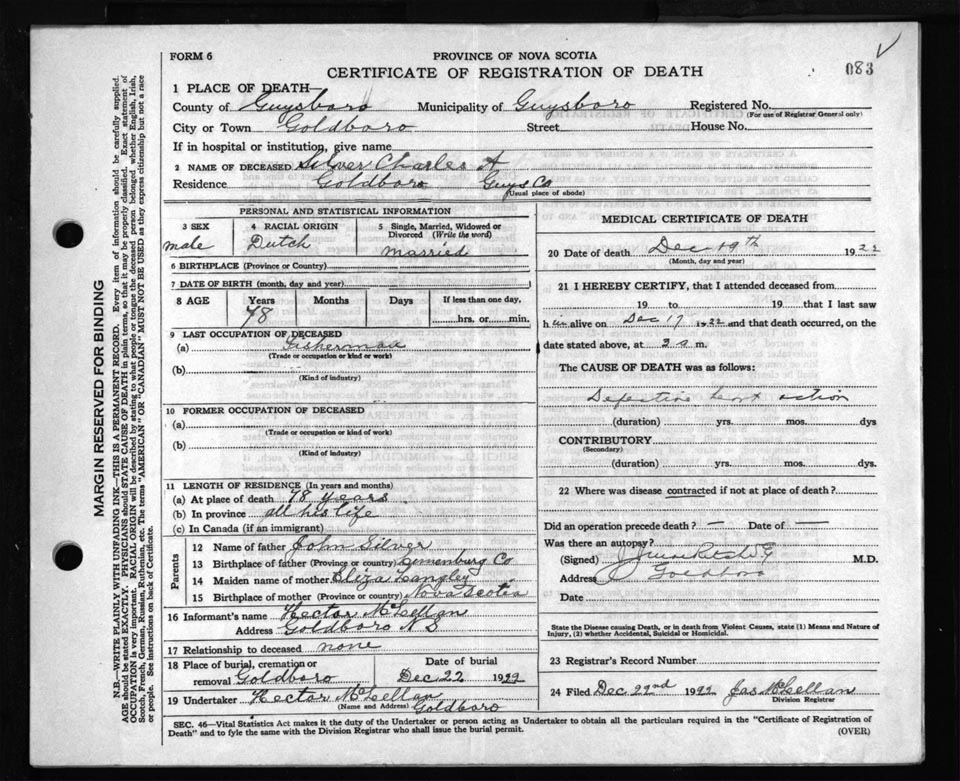 FORM 6
PROVINCE OF NOVA SCOTIA
CERTIFICATE OF REGISTRATION OF DEATH
083
1 PLACE OF DEATH—
County of Guysboro Municipality of Guysboro Registered No.
(For use of Registrar General only)
City or Town Goldboro Street House No.
If in hospital or institution, give name
2 NAME OF DECEASED Silver Charles A
Residence Goldboro Guys Co
(Usual place of abode)
PERSONAL AND STATISTICAL INFORMATION
3 SEX 4 RACIAL ORIGIN 5 Single, Married, Widowed or Divorced (Write the word)
male Dutch married
6 BIRTHPLACE (Province or Country)
7 DATE OF BIRTH (month, day and year)
8 AGE Years Months Days If less than one day,
78 hrs. or min.
9 LAST OCCUPATION OF DECEASED
(a) Fisherman
(Trade or occupation or kind or work)
(b)
(Kind of industry)
10 FORMER OCCUPATION OF DECEASED
(a)
(Trade or occupation or kind of work)
(b)
(Kind of industry)
11 LENGTH OF RESIDENCE (In years and months)
(a) At place of death 78 years
(b) In province all his life
(c) In Canada (if an immigrant)
Parents
12 Name of father John Silver
13 Birthplace of father (Province or country) Lunenburg Co
14 Maiden name of mother Eliza Langley
15 Birthplace of mother (Province or country) Nova Scotia
16 Informant's name Hector McLellan
Address Goldboro N S
17 Relationship to deceased none
18 Place of burial, cremation or removal Goldboro
Date of burial
Dec 22 1922
19 Undertaker Hector McLellan
(Name and Address) Goldboro
MEDICAL CERTIFICATE OF DEATH
20 Date of death Dec 19th 1922
(Month, day and year)
21 I HEREBY CERTIFY, that I attended deceased from
19 to 19 that I last saw
him alive on Dec 17 1922 and that death occurred, on
date stated above, at 3 a m.
The CAUSE OF DEATH was as follows:
Defective heart action
(duration) yrs. mos. dys
CONTRIBUTORY
(Secondary)
(duration) yrs. mos. dys.
22 Where was disease contracted if not at place of death?
Did an operation precede death? — Date of —
Was there an autopsy?
(Signed) M.D.
Address Goldboro
Date
State the Disease causing Death, or in death from Violent Causes, state (1) Means and Nature of
Injury, (2) whether Accidental, Suicidal or Homicidal.
23 Registrar's Record Number
24 Filed Dec 22nd 1922 Jas McLellan
Division Registrar
SEC. 46—Vital Statistics Act makes it the duty of the Undertaker or person acting as Undertaker to obtain all the particulars required in the "Certificate of Registration of
Death" and to fyle the same with the Division Registrar who shall issue the burial permit.
(OVER)
MARGIN RESERVED FOR BINDING
N.B.—WRITE PLAINLY WITH UNFADING INK—THIS IS A PERMANENT RECORD. Every item of information should be carefully supplied.
AGE should be stated EXACTLY. PHYSICIANS should STATE CAUSE OF DEATH in plain terms, so that it may be properly classified. Exact statement of
OCCUPATION is very important. RACIAL ORIGIN will be described by stating to what people or tongue the deceased person belonged whether English, Irish,
Scotch, French, German, Russian, Ruthenian, etc. The terms "AMERICAN" OR "CANADIAN" MUST NOT BE USED as they express citizenship but not a race
or people. See instructions on back of Certificate.